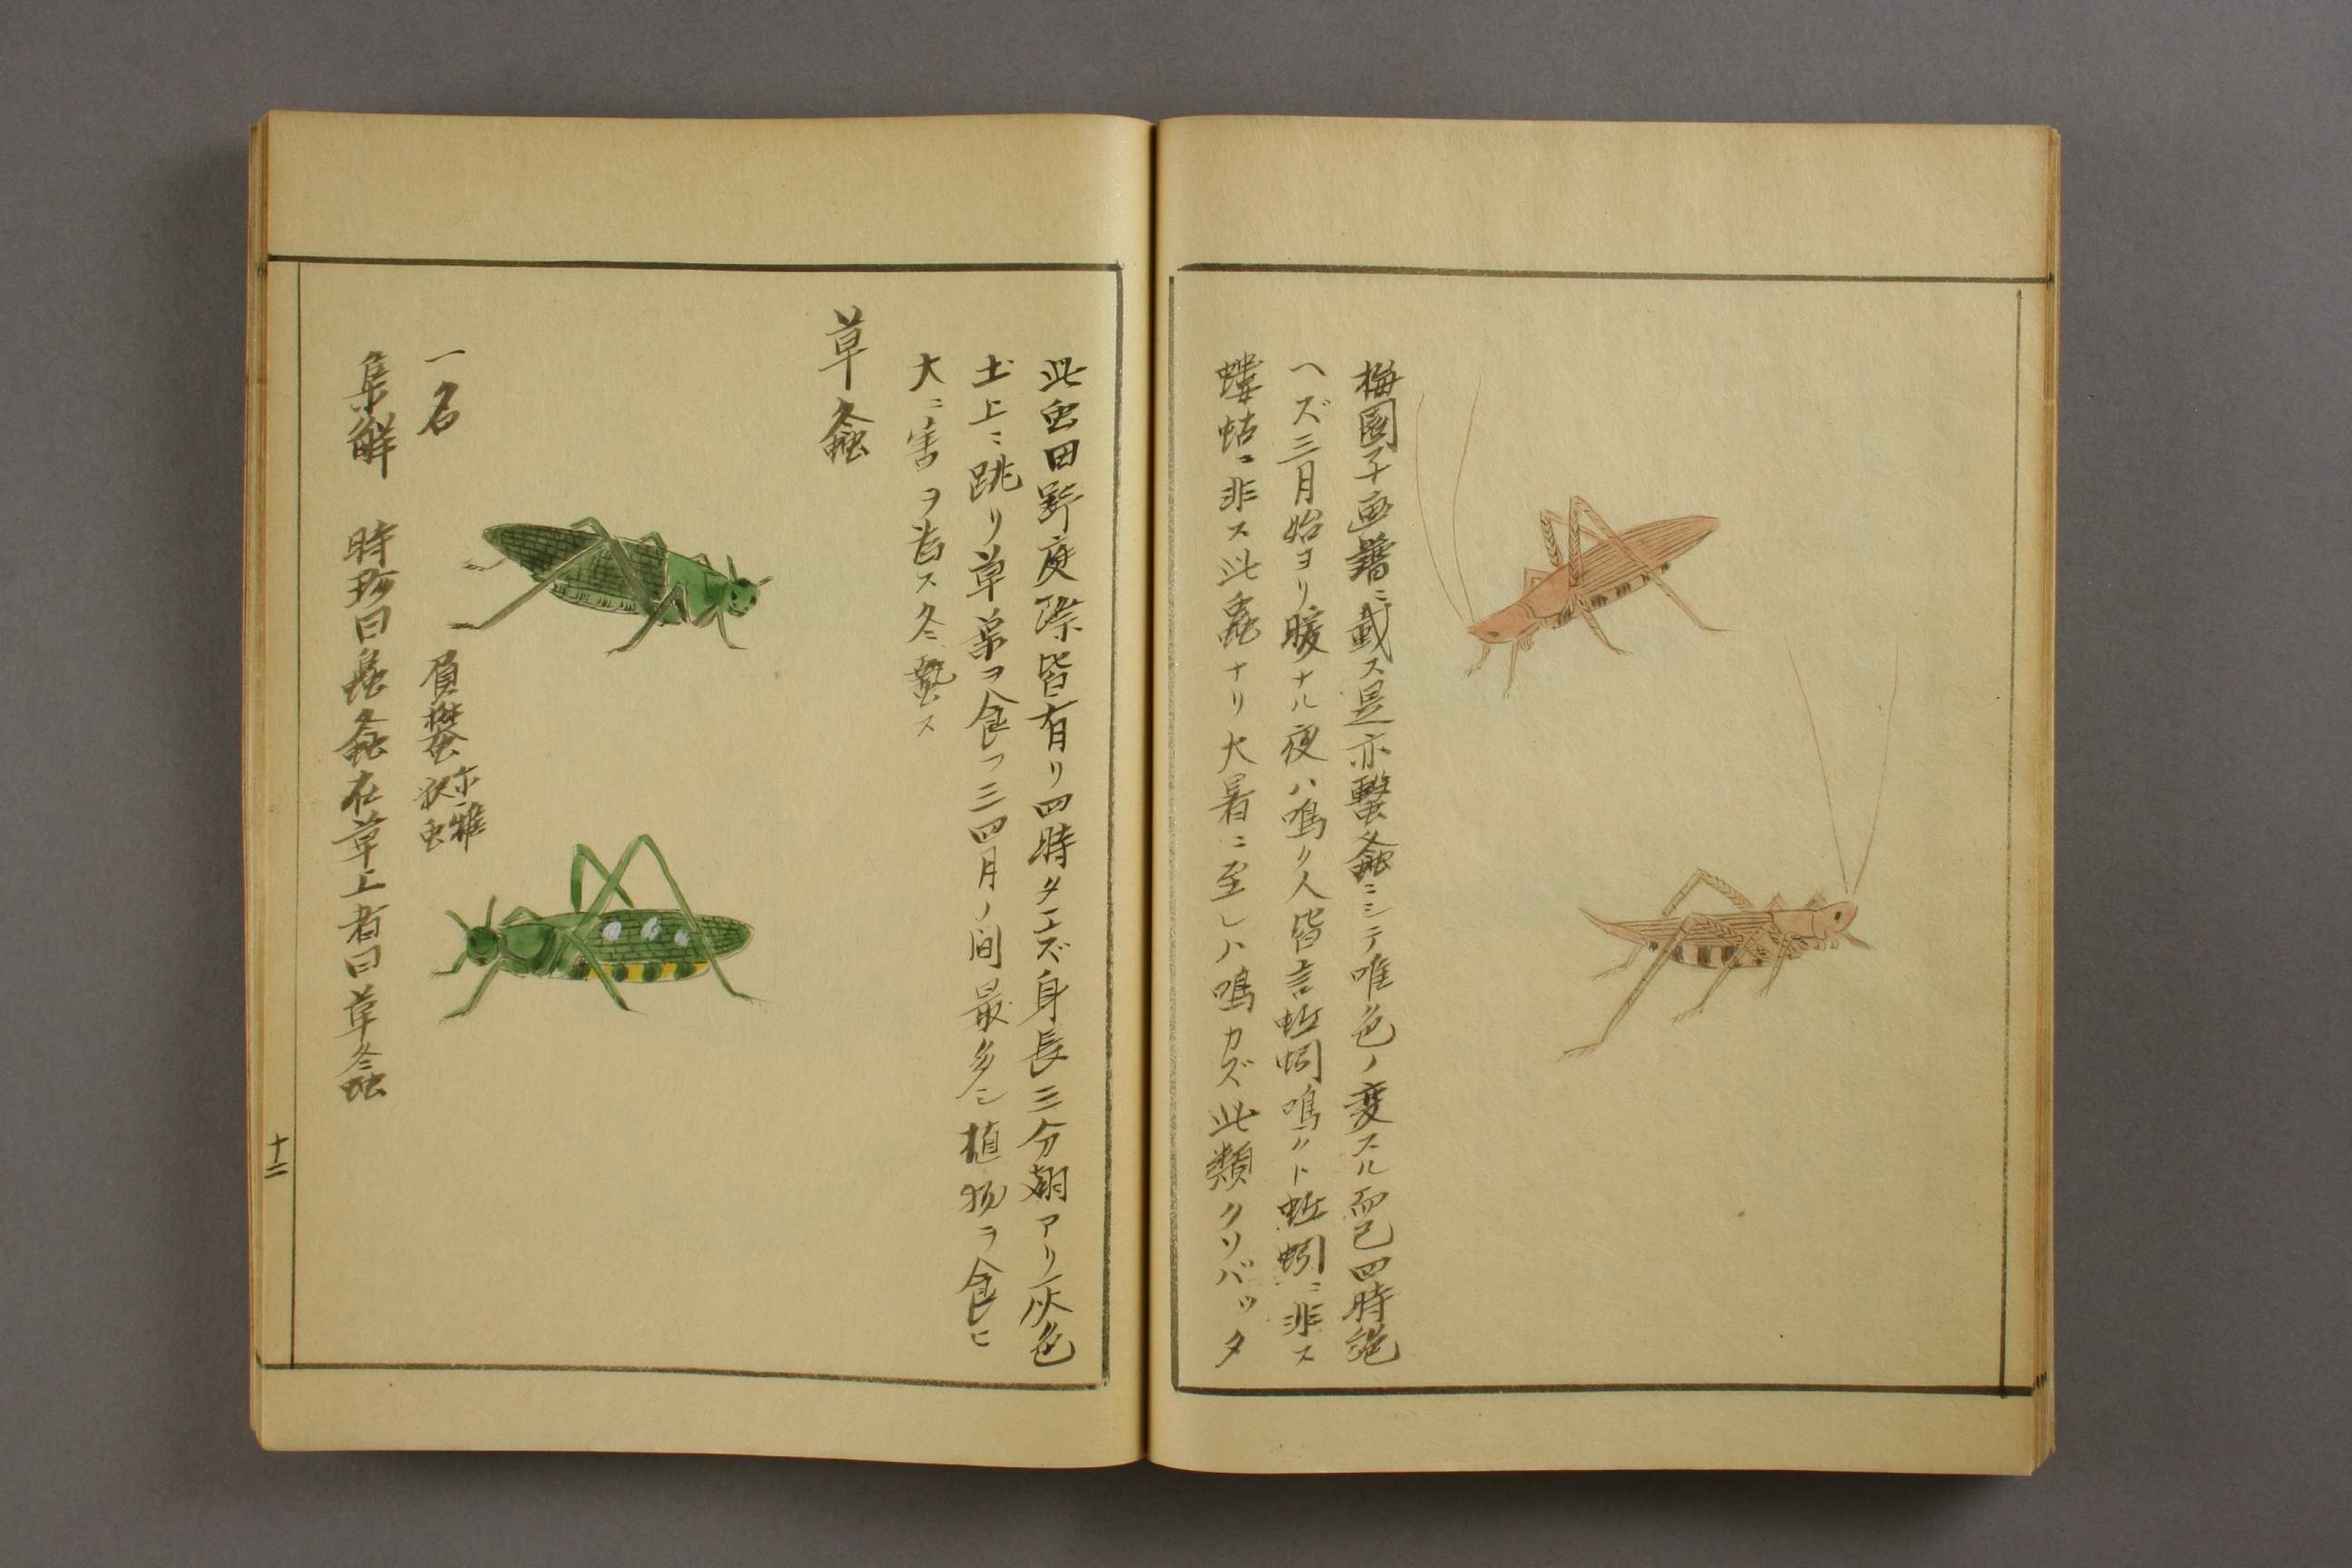 梅園子画譜ニ載ス是亦蟿螽ニシテ唯色ノ変スル而已四時絶
ヘズ三月始ヨリ暖ナル夜ハ鳴ク人皆言蚯蚓鳴クト蚯蚓ニ非ス
螻蛄ニ非ス此蟲ナリ大暑ニ至レハ鳴カズ此類クソバッタ
此虫田野庭際皆有リ四時タエズ身長三分翅アリ灰色
土上ニ跳リ草葉ヲ食フ三四月ノ間最多シ植物ヲ食ヒ
大ニ害ヲ為ス冬蟄ス
草螽
一名 負蠜 尓雅
集解 時珍曰蟲螽在草上者曰草螽
十二